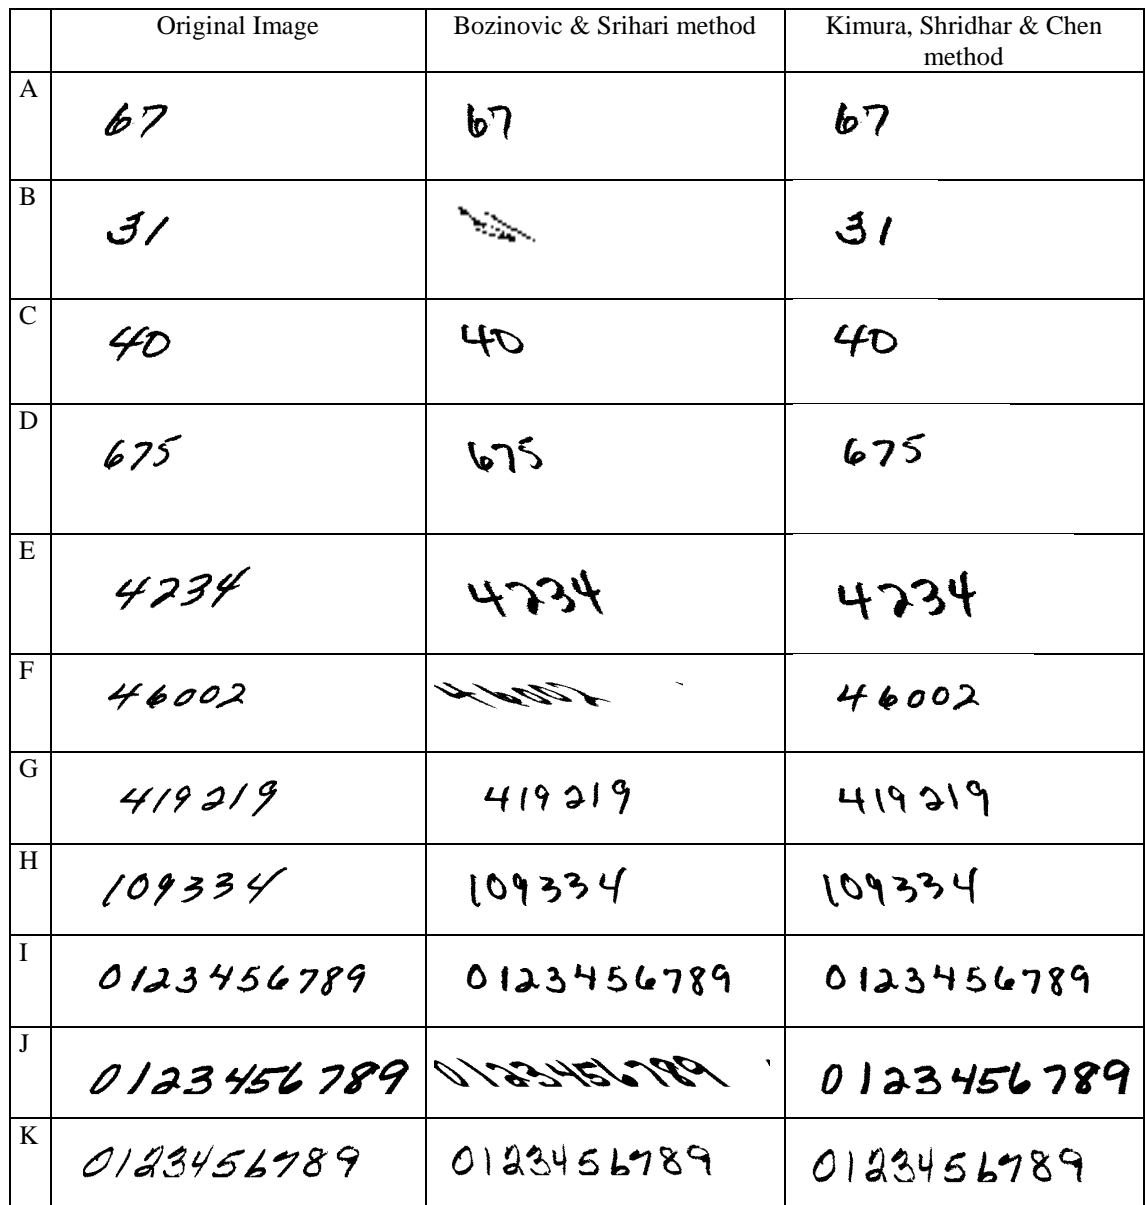 Original Image Bozinovic & Srihari method Kimura, Shridhar & Chen method
A 67 67 67
B 31 31
C 40 40 40
D 675 675 675
E 4234 4234 4234
F 46002 46002 46002
G 419219 419219 419219
H 109334 109334 109334
I 0123456789 0123456789 0123456789
J 0123456789 0123456789 0123456789
K 0123456789 0123456789 0123456789